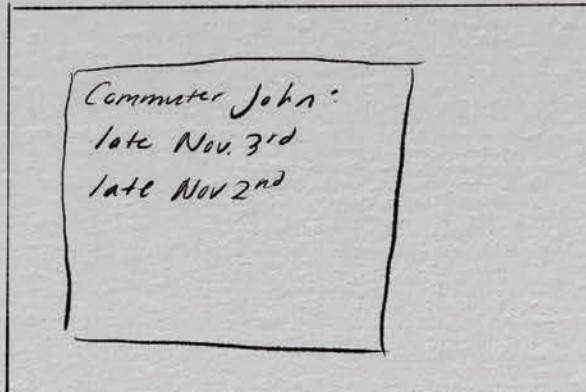 Commuter John:
late Nov. 3rd
late Nov 2nd